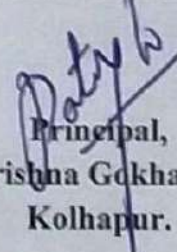 Principal,
rishna Gokha
Kolhapur.